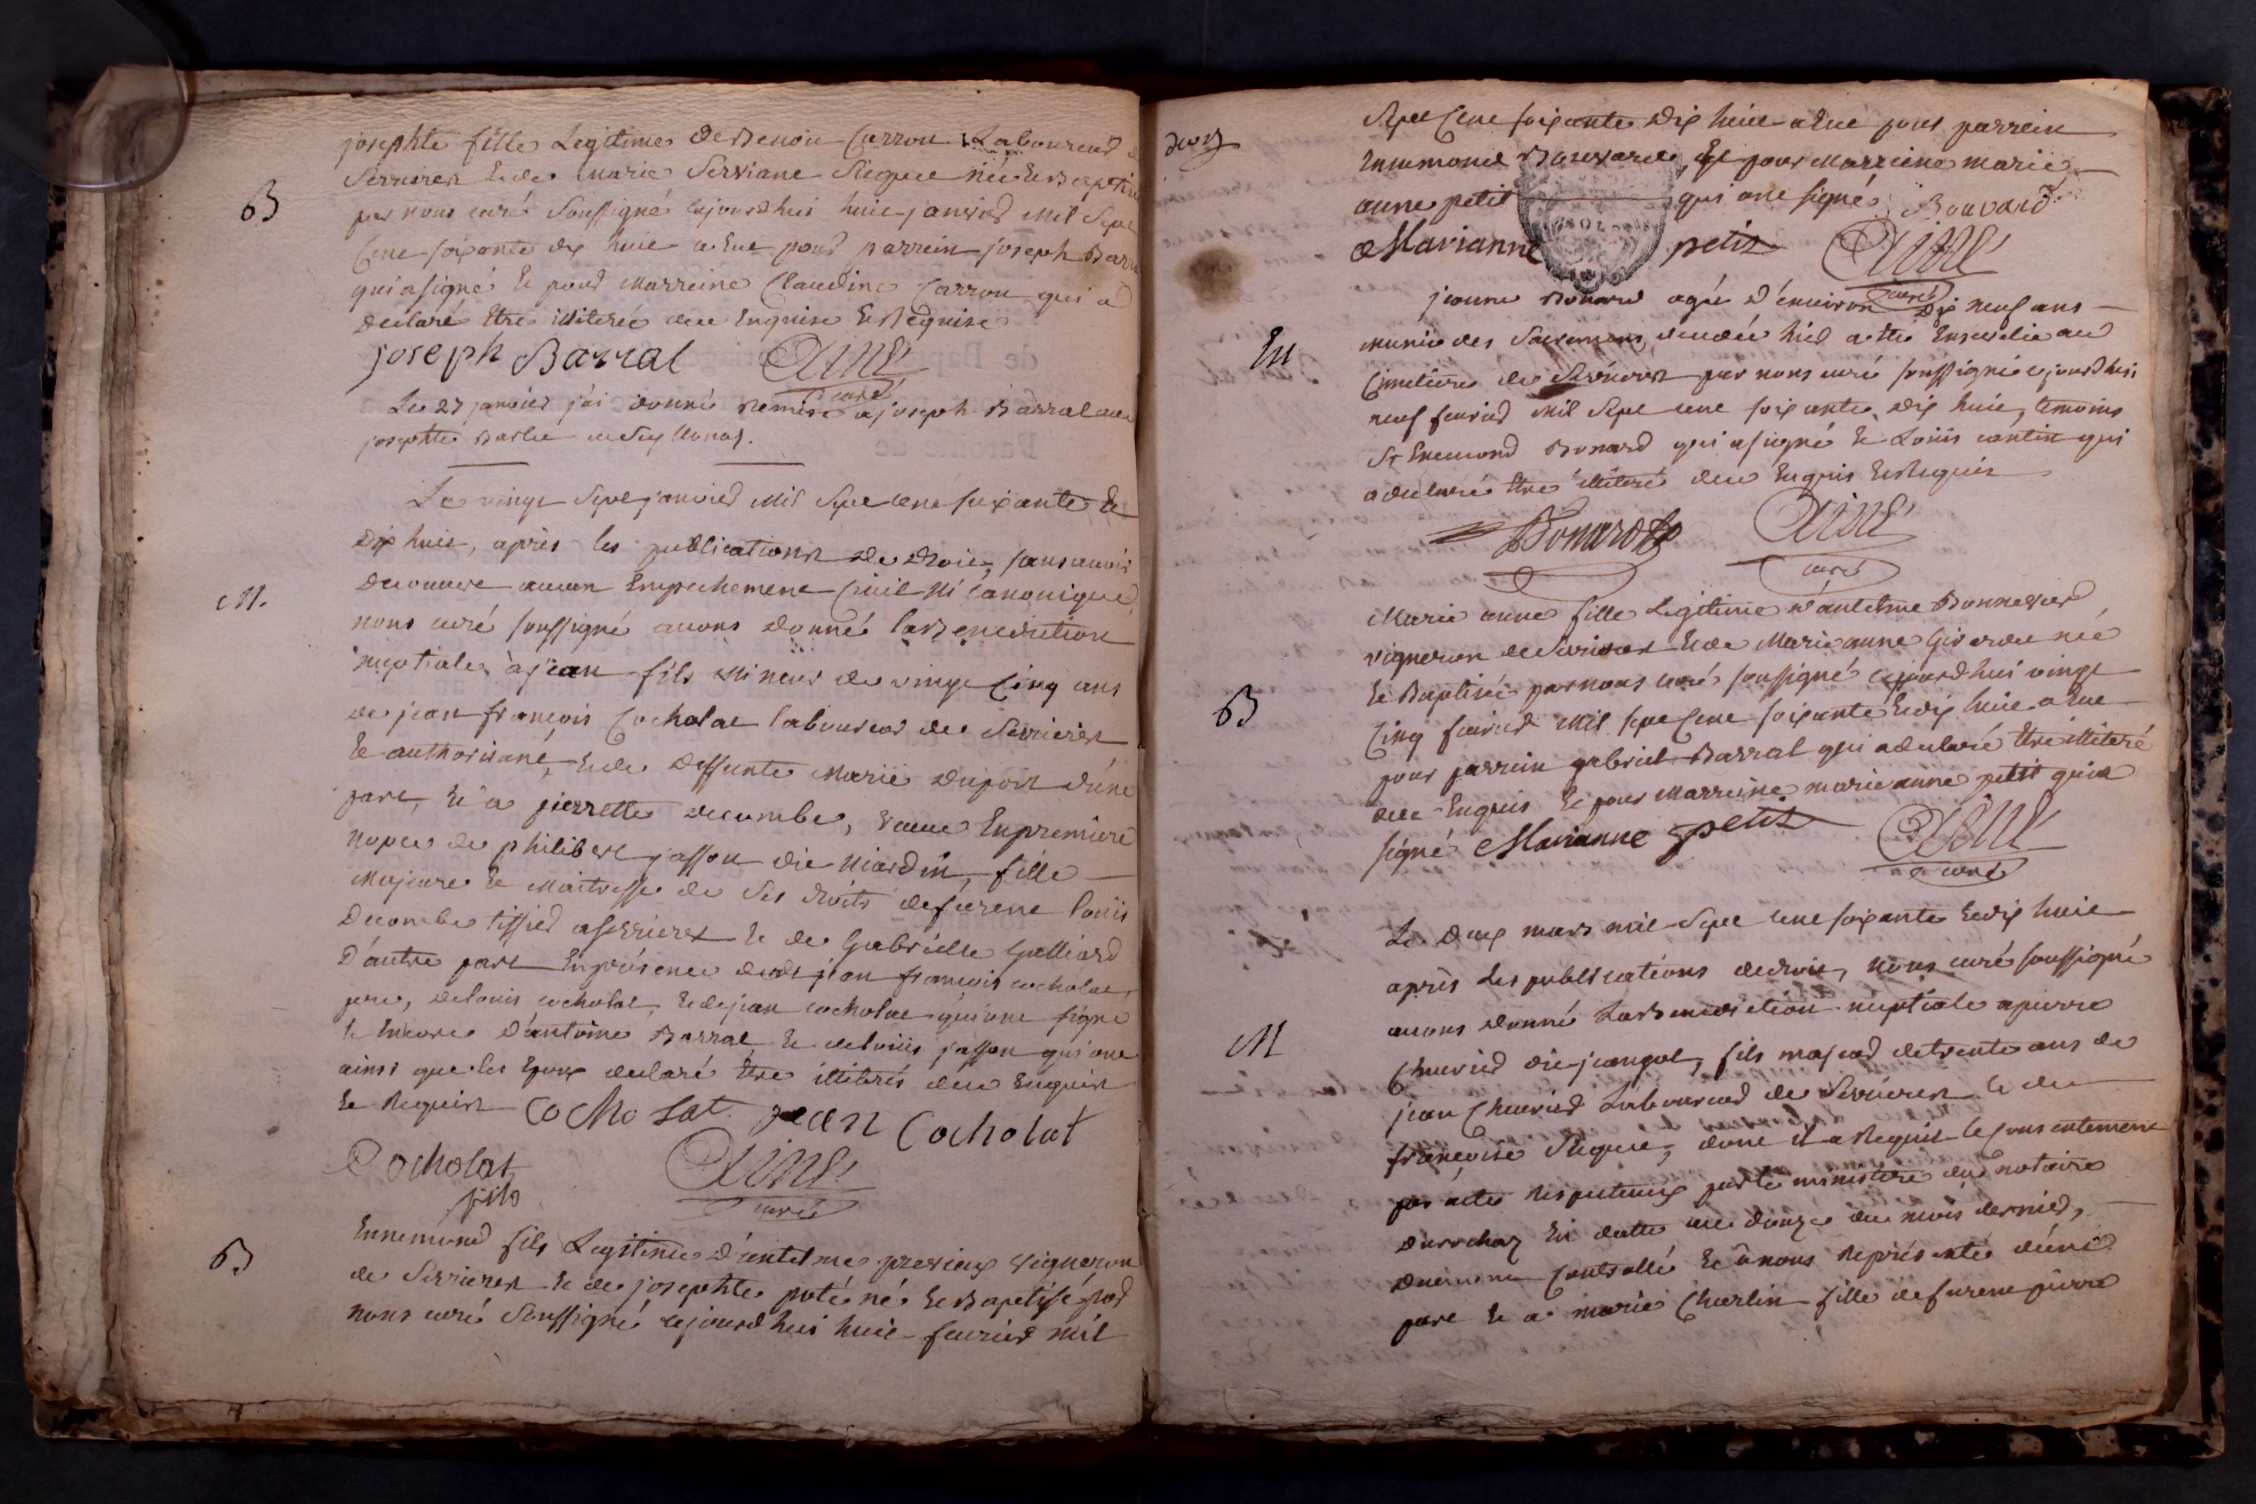 B
josephte fille Legitime de Benoit Carron Laboureur
Serrieres et de Marie Serviane Siequet née et Baptisée
par nous curé soussigné cejourdhui huit janvier mil sept
cent soixante dix huit a eut pour parrein joseph Barral
qui a signé et pour marreine Claudine Carron qui a
declaré être illiterée due enquise et Requise
joseph Barral
Aimé
curé
Le 27 janvier j'ai donné Remise a joseph Barral
josephte
Le vingt sept janvier mil sept cent soixante et
dix huit, après les publications de droit, sans avoir
M.
decouvert aucun empechement Civil ni Canonique
nous curé soussigné avons donné la Benediction
nuptiale à jean fils mineur de vingt Cinq ans
de jean françois Cocholat laboureur de Serrieres
et authorisant, et de deffunte Marie Duport d'une
part, et a pierrette decombe, veuve en premiere
nopce de philibert jasson dit Niardin, fille
majeure et maitresse de ses droits de furent louis
decombe tissier a Serrieres et de Gabrielle Galliard
D'autre part en présence dudt jean françois cocholat
pere, de louis cocholat, et de jean cocholat qui ont signé
et encore d'antoine Barral et de louis jasson qui ont
ainsi que les epoux declaré être illiterés due enquis
et Requis Cocholat jean Cocholat
Cocholat
fils
Aimé
curé
B
Ennemond fils Legitime d'antelme previeux vigneron
de Serrieres et de josephte poté né et Baptisé par
nous curé soussigné cejourdhui huit fevrier mil
deux
sept cent soixante dix huit a eut pour parrein
Ennemond Bouvard, et pour marreine marie
anne petit qui ont signé Bouvard
Marianne petit
Aimé
curé
En
jeanne Bonard agée d'environ dix neuf ans
munie des Sacremens, decedée hier a été Ensevelie au
Cimetiere de Serrieres par nous curé soussigné cejourdhui
neuf fevrier mil sept cent soixante dix huit, temoins
Sr Enemond Bonard qui a signé et Loüis contin qui
a declaré être illiteré due enquis et Requis
Bonard
Aimé
curé
Marie anne fille Legitime d'antelme Bonnevier
vigneron de Serrieres et de Marie anne née
B
et Baptisée par nous curé soussigné cejourdhui vingt
Cinq fevrier mil sept cent soixante et dix huit a eut
pour parrein gabriel Barral qui a declaré être illiteré
due enquis et pour marreine marie anne petit qui a
signé Marianne petit
Aimé
curé
Le deux mars mil sept cent soixante et dix huit
après les publications de droit, nous curé soussigné
avons donné la Benediction nuptiale a pierre
M
Cheurier dit jeangot, fils majeur de trente ans de
jean Cheurier Laboureur de Serrieres et de
françoise Siequet, dont il a Requis le consentement
par actes Respectueux par le ministère du notaire
Durochaz en datte du douze du mois dernier,
duement Controllé et à nous Représenté d'une
part et a marie Charlin fille de furent pierre